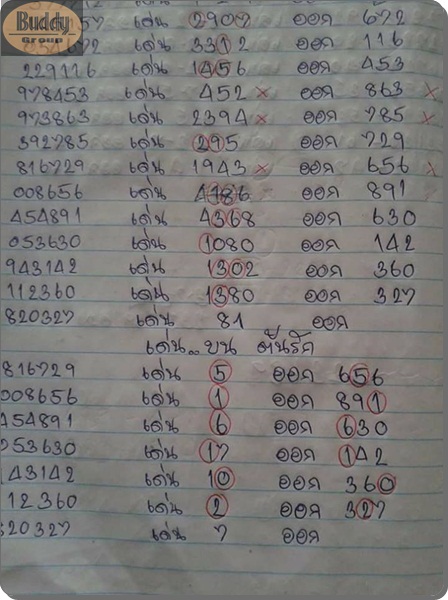 Buddy
Group
57 เด่น 2907 ออก 672
72 เด่น 3312 ออก 116
229116 เด่น 1456 ออก 453
978453 เด่น 452 × ออก 863 ×
973863 เด่น 2394 × ออก 785 ×
392785 เด่น 295 ออก 729
816729 เด่น 1943 × ออก 656 ×
008656 เด่น 4186 ออก 891
454891 เด่น 4368 ออก 630
053630 เด่น 1080 ออก 142
943142 เด่น 1302 ออก 360
112360 เด่น 1380 ออก 327
820327 เด่น 81 ออก
เด่น.. บน
816729 เด่น 5 ออก 656
008656 เด่น 1 ออก 891
454891 เด่น 6 ออก 630
053630 เด่น 17 ออก 142
43142 เด่น 10 ออก 360
12360 เด่น 2 ออก 327
20327 เด่น 7 ออก